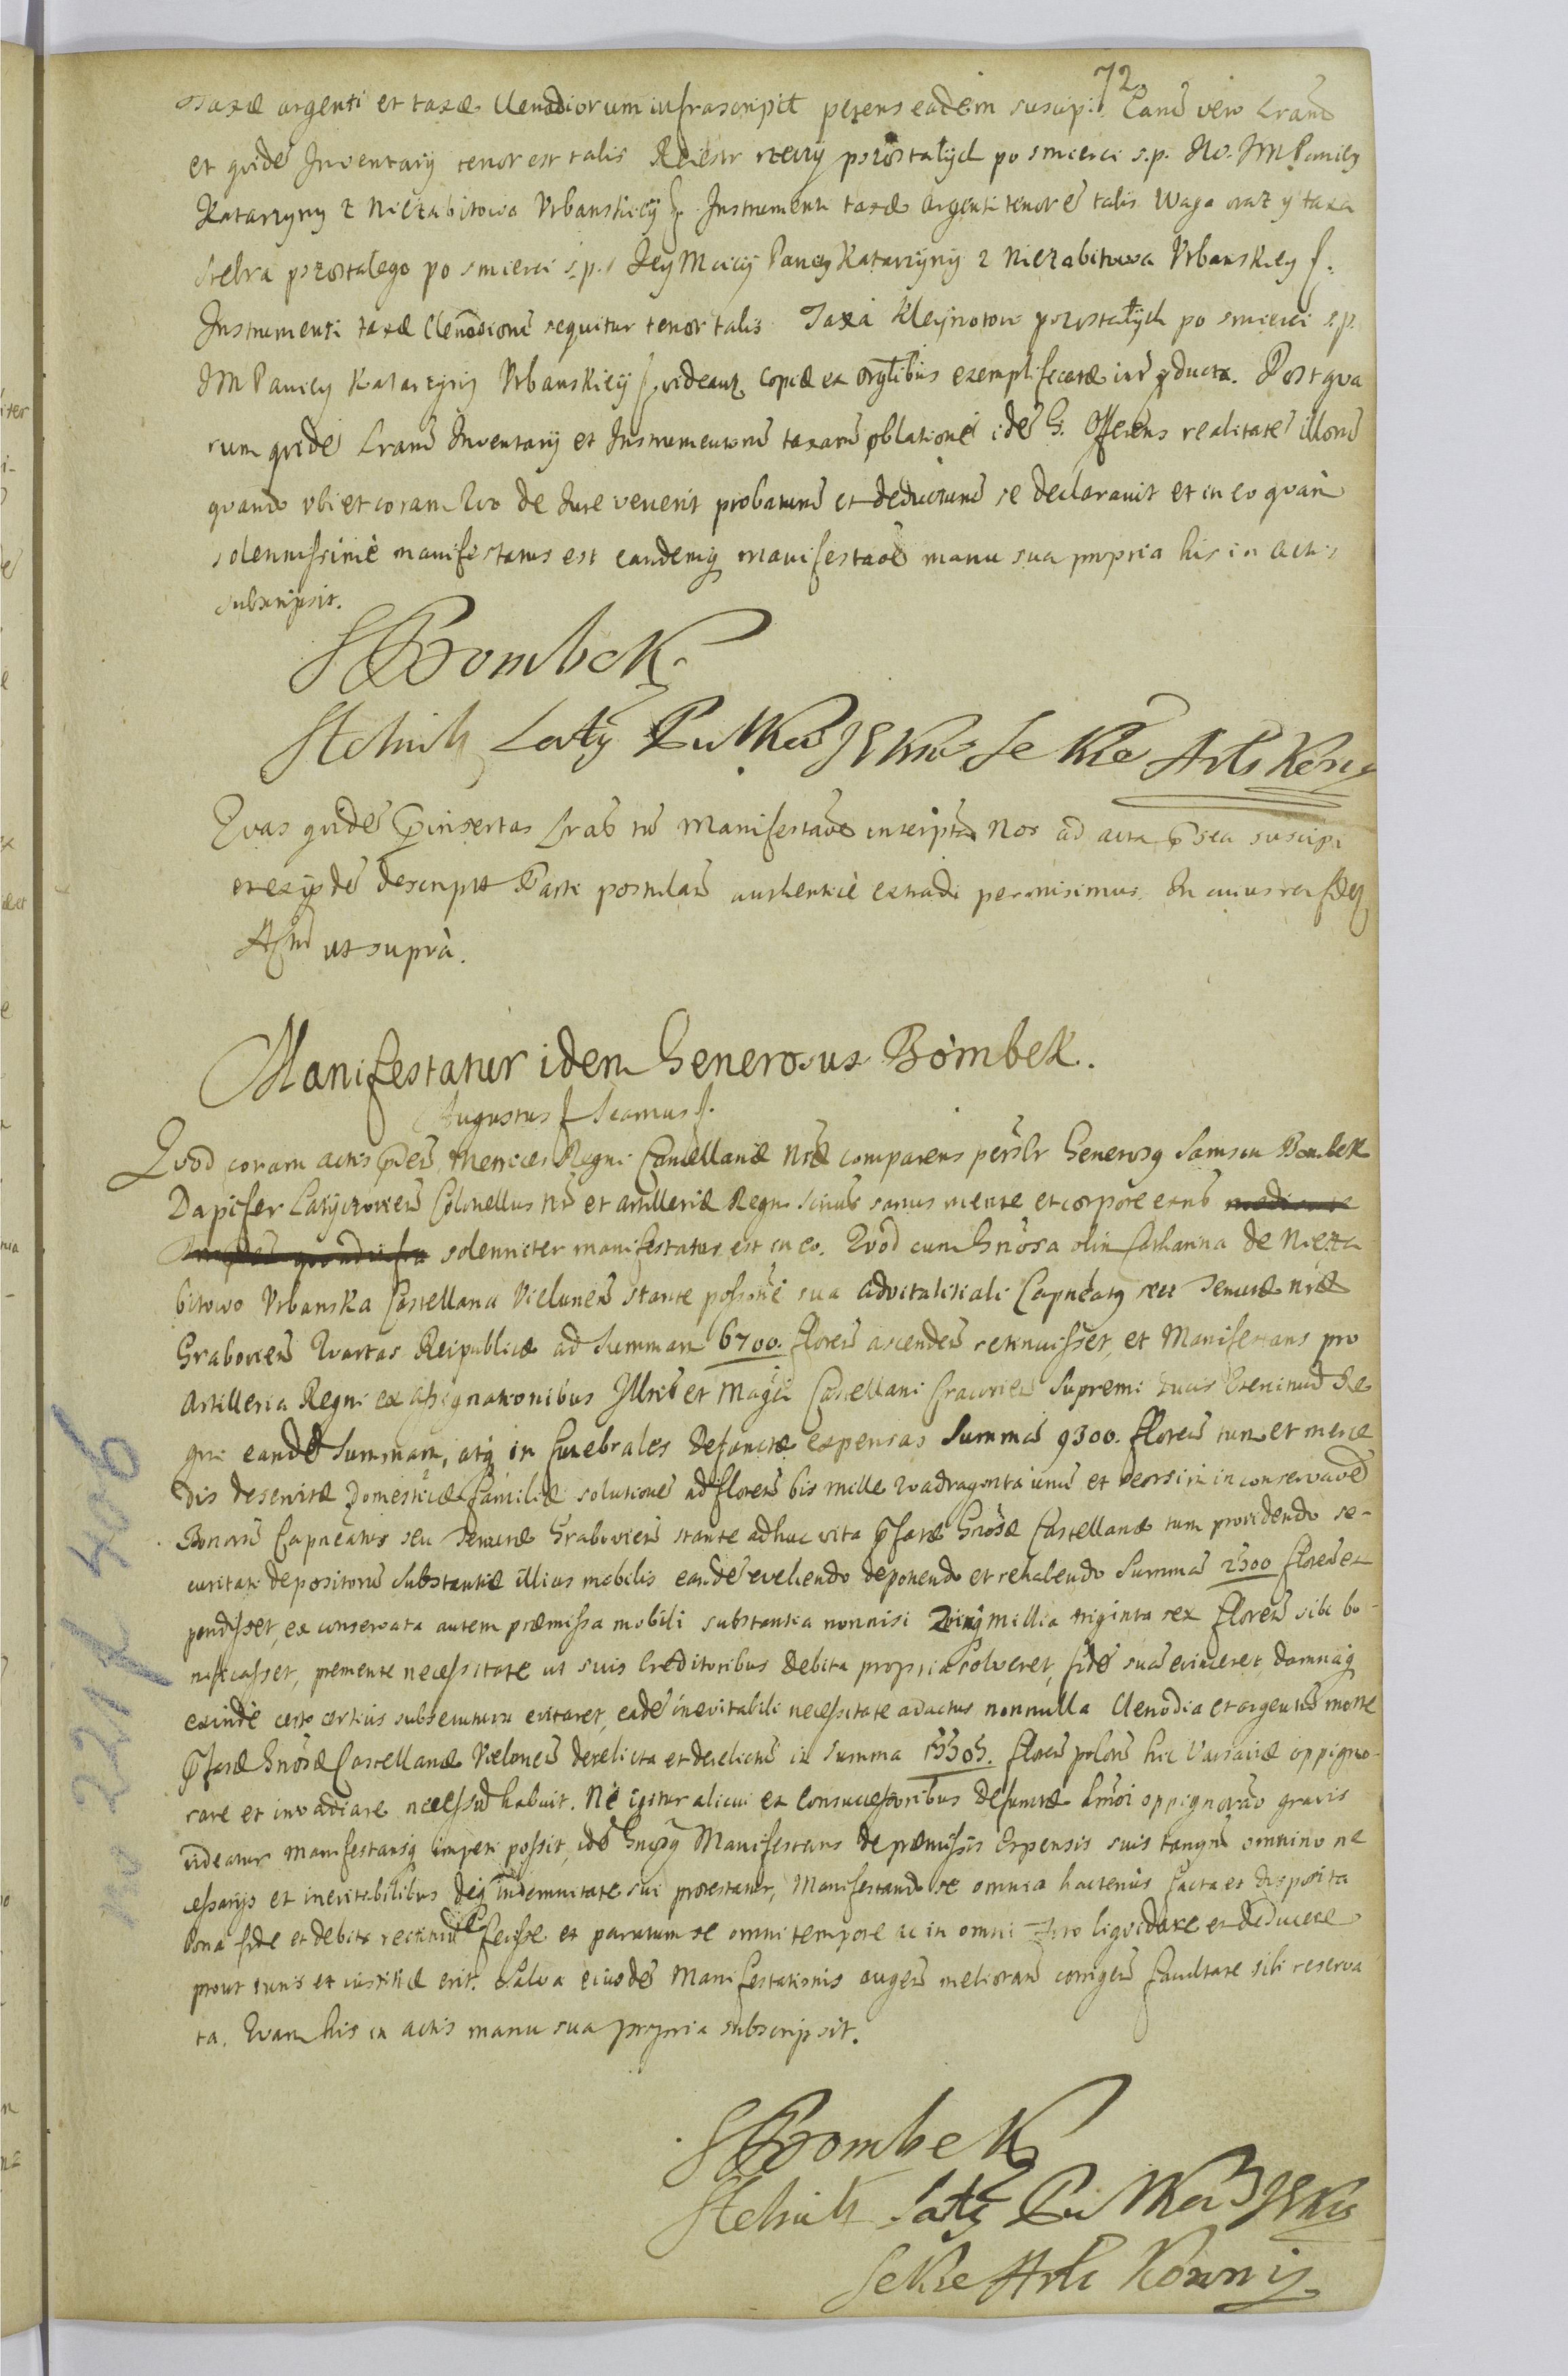 72
Taxæ argenti et taxæ Clenodiorum infrascriptt petens eadem suscipi. Eamd vero Lrand
et quidē Inventarij tenor est talis Reiestr rzeczy pozostałych po smierci s.p. JM Paniey
Katarzyny z Niezabitowa Vrbanskiey f. Instrumenti taxæ argenti tenor ē talis Waga oraz y taxa
srebra pozostałego po smierci s.p. Jey Mciey Paniey Katarzyny z Niezabitowa Vrbanskiey f.
Instrumenti taxæ Clenodiorū sequitur tenor talis Taxa Kleynotow pozostałych po smierci s.p.
JM Paniey Katarzyny Vrbanskiey f. videant copiæ ex orgłibus exemplificatæ ducta. Post qua
rum quidē Lrarū Inventarij et Instrumentorū taxarū oblationē idē G. Offerens realitatē illorū
quando vbi et coram Quo de Jure venerit probaturū et deducturū se declaravit et in eo quàm
solennissimè manifestatus est eandemq manifestaōē manu sua propria his in actis
subscripsit.
SBombek
Stolnik Laty Pułko JKM Se Kre Arty Kor
Quas quidē ṗinsertas Lras tū manifestaōē inscriptā Nos ad acta ṗsea suscipi
et ex ijsdē descriptt Parti postulan authenticè extradi permisimus. In cuius rei fidē
Actū ut suprà.
Manifestatur idem Generosus Bombek.
Augustus f Scamus f.
Quod coram actis ṗntibus Metrices Regni Cancellariæ nræ comparens pērslr Generosq Samson Bombek
Dapifer Latyczovien Colonellus nr et artilleriæ Regni sanus mente et corpore exns mediante
solenniter manifestatus est in eo. Quod cum Gnosa olim Catharina de Nieza
bitowo Vrbanska Castellana Vielunen stante possonē sua advitalitiali Capneatq seu Tenutæ nræ
Grabovien Quartas Reipublicæ ad Summam 6700. floren ascenden retinuisset, et Manifestans pro
Artilleria Regni ex assignationibus Illris et Magci Castellani Cracovien Supremi Ducis Exercituū Re
gni eandē Summam, atq in funebrales defunctæ expensas Summā 9300. floren tum et merce
dis deservitæ Domesticæ familiæ solutionē ad floren bis mille quadraginta unū et seorsim in conservaōē
Bonorū Capneatus seu Tenutæ Grabovien stante adhuc vita ṗfatæ Gnosæ Castellanæ tum providendo se-
curitati depositorū Substantiæ illius mobilis eandē evehendo deponendo et rehabendo Summā 2300 floren ex
pendisset, ex conservata autem præmissa mobili substantia nonnisi Quinq millia triginta sex floren sibi bo-
nificasset, premente necessitate ut suis Creditoribus debita propria solveret, fidē suā evinceret, damnaq
exindè certo certius subsecutura evitaret, eadē inevitabili necessitate adactus nonnulla Clenodia et argentū morte
ṗfatæ Gnosæ Castellanæ Vielunen derelicta et derelictū in Summa 15305. floren polon hic Varsaviæ oppigno-
rare et invadiare necessū habuit. Nè igitur alicui ex consuccessoribus defunctæ hmoi oppignoraō gravis
videatur manifestansq impeti possit, idē Gnosq Manifestans de præmissis Expensis suis tanqm omnino ne
cessarijs et inevitabilibus deq indemnitate sui protestatur, Manifestando se omnia hactenùs facta et disposita
bona fide et debita rectitudine fecisse et paratum se omni tempore ac in omni Foro liquidare et deducere
prout iuris et iustitiæ erit. Salva eiusdē Manifestationis augen melioran corrigen facultate sibi reserva
ta. Quam his in actis manu sua propria subscripsit.
SBombek
Stolnik Laty Pułko JKM
Se Kre Arty Koronny
no 221 f 406